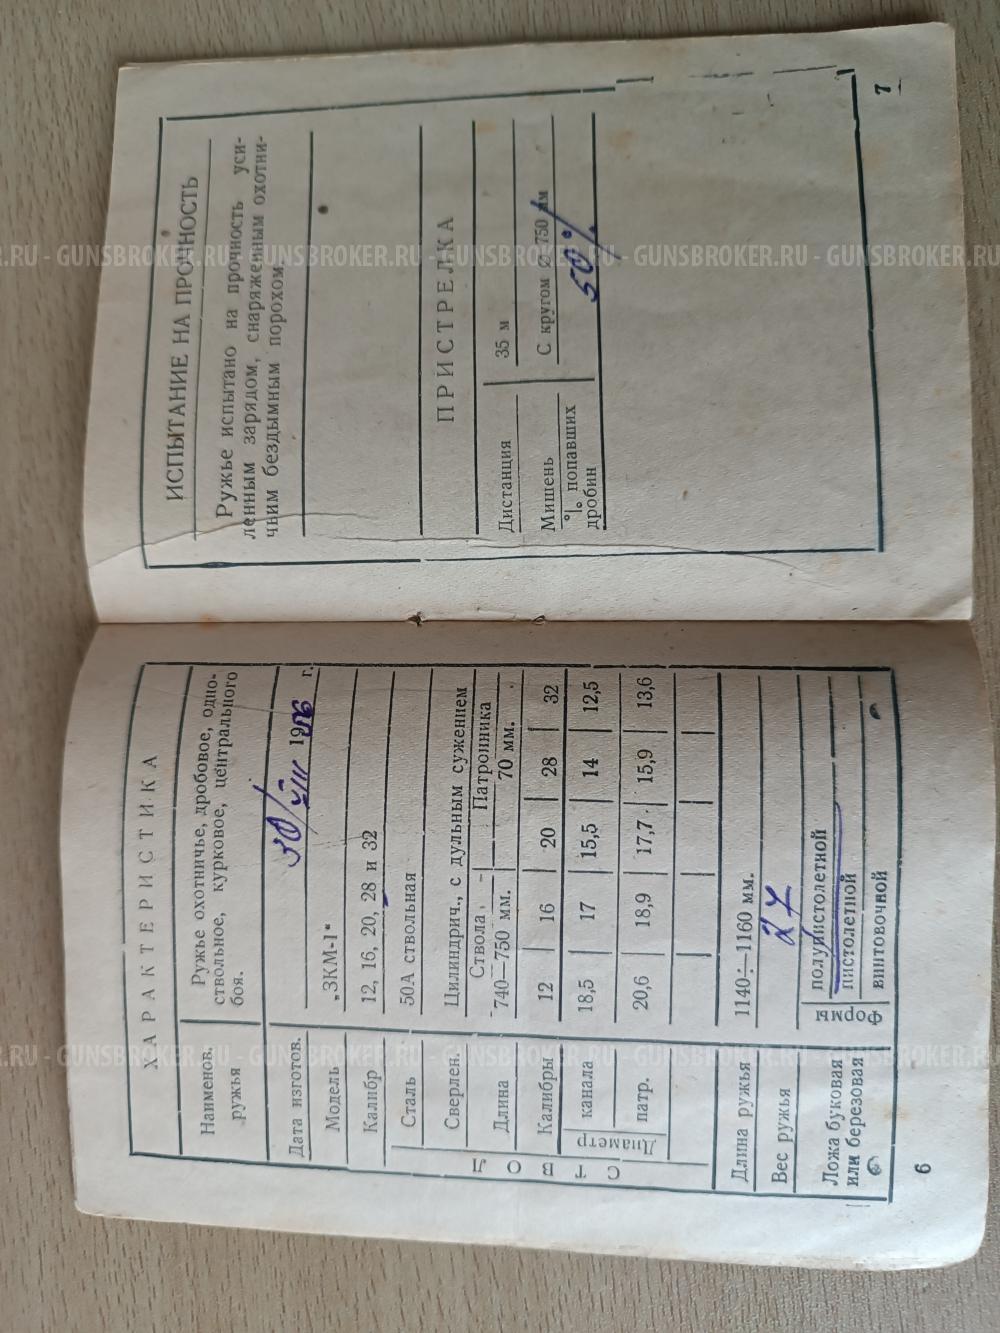 ХАРАКТЕРИСТИКА
Наименов. ружья
Ружье охотничье, дробовое, одно-
ствольное, курковое, центрального
боя.
Дата изготов. 30/VIII 1956 г.
Модель „ЗКМ-1"
Калибр 12, 16, 20, 28 и 32
СТВОЛ
Сталь 50А ствольная
Сверлен. Цилиндрич., с дульным сужением
Длина Ствола 740—750 мм. Патронника 70 мм.
Калибры 12 16 20 28 32
Диаметр
канала 18,5 17 15,5 14 12,5
патр. 20,6 18,9 17,7 15,9 13,6
Длина ружья 1140÷1160 мм.
Вес ружья 2,7
Ложа буковая
или березовая
Формы
полупистолетной
пистолетной
винтовочной
6
ИСПЫТАНИЕ НА ПРОЧНОСТЬ
Ружье испытано на прочность уси-
ленным зарядом, снаряженным охотни-
чьим бездымным порохом
ПРИСТРЕЛКА
Дистанция 35 м
Мишень С кругом ⌀ 750 мм
% попавших
дробин
50%
7
GUNSBROKER.RU - GUNSBROKER.RU - GUNSBROKER.RU - GUNSBROKER.RU
GUNSBROKER.RU - GUNSBROKER.RU - GUNSBROKER.RU - GUNSBROKER.RU